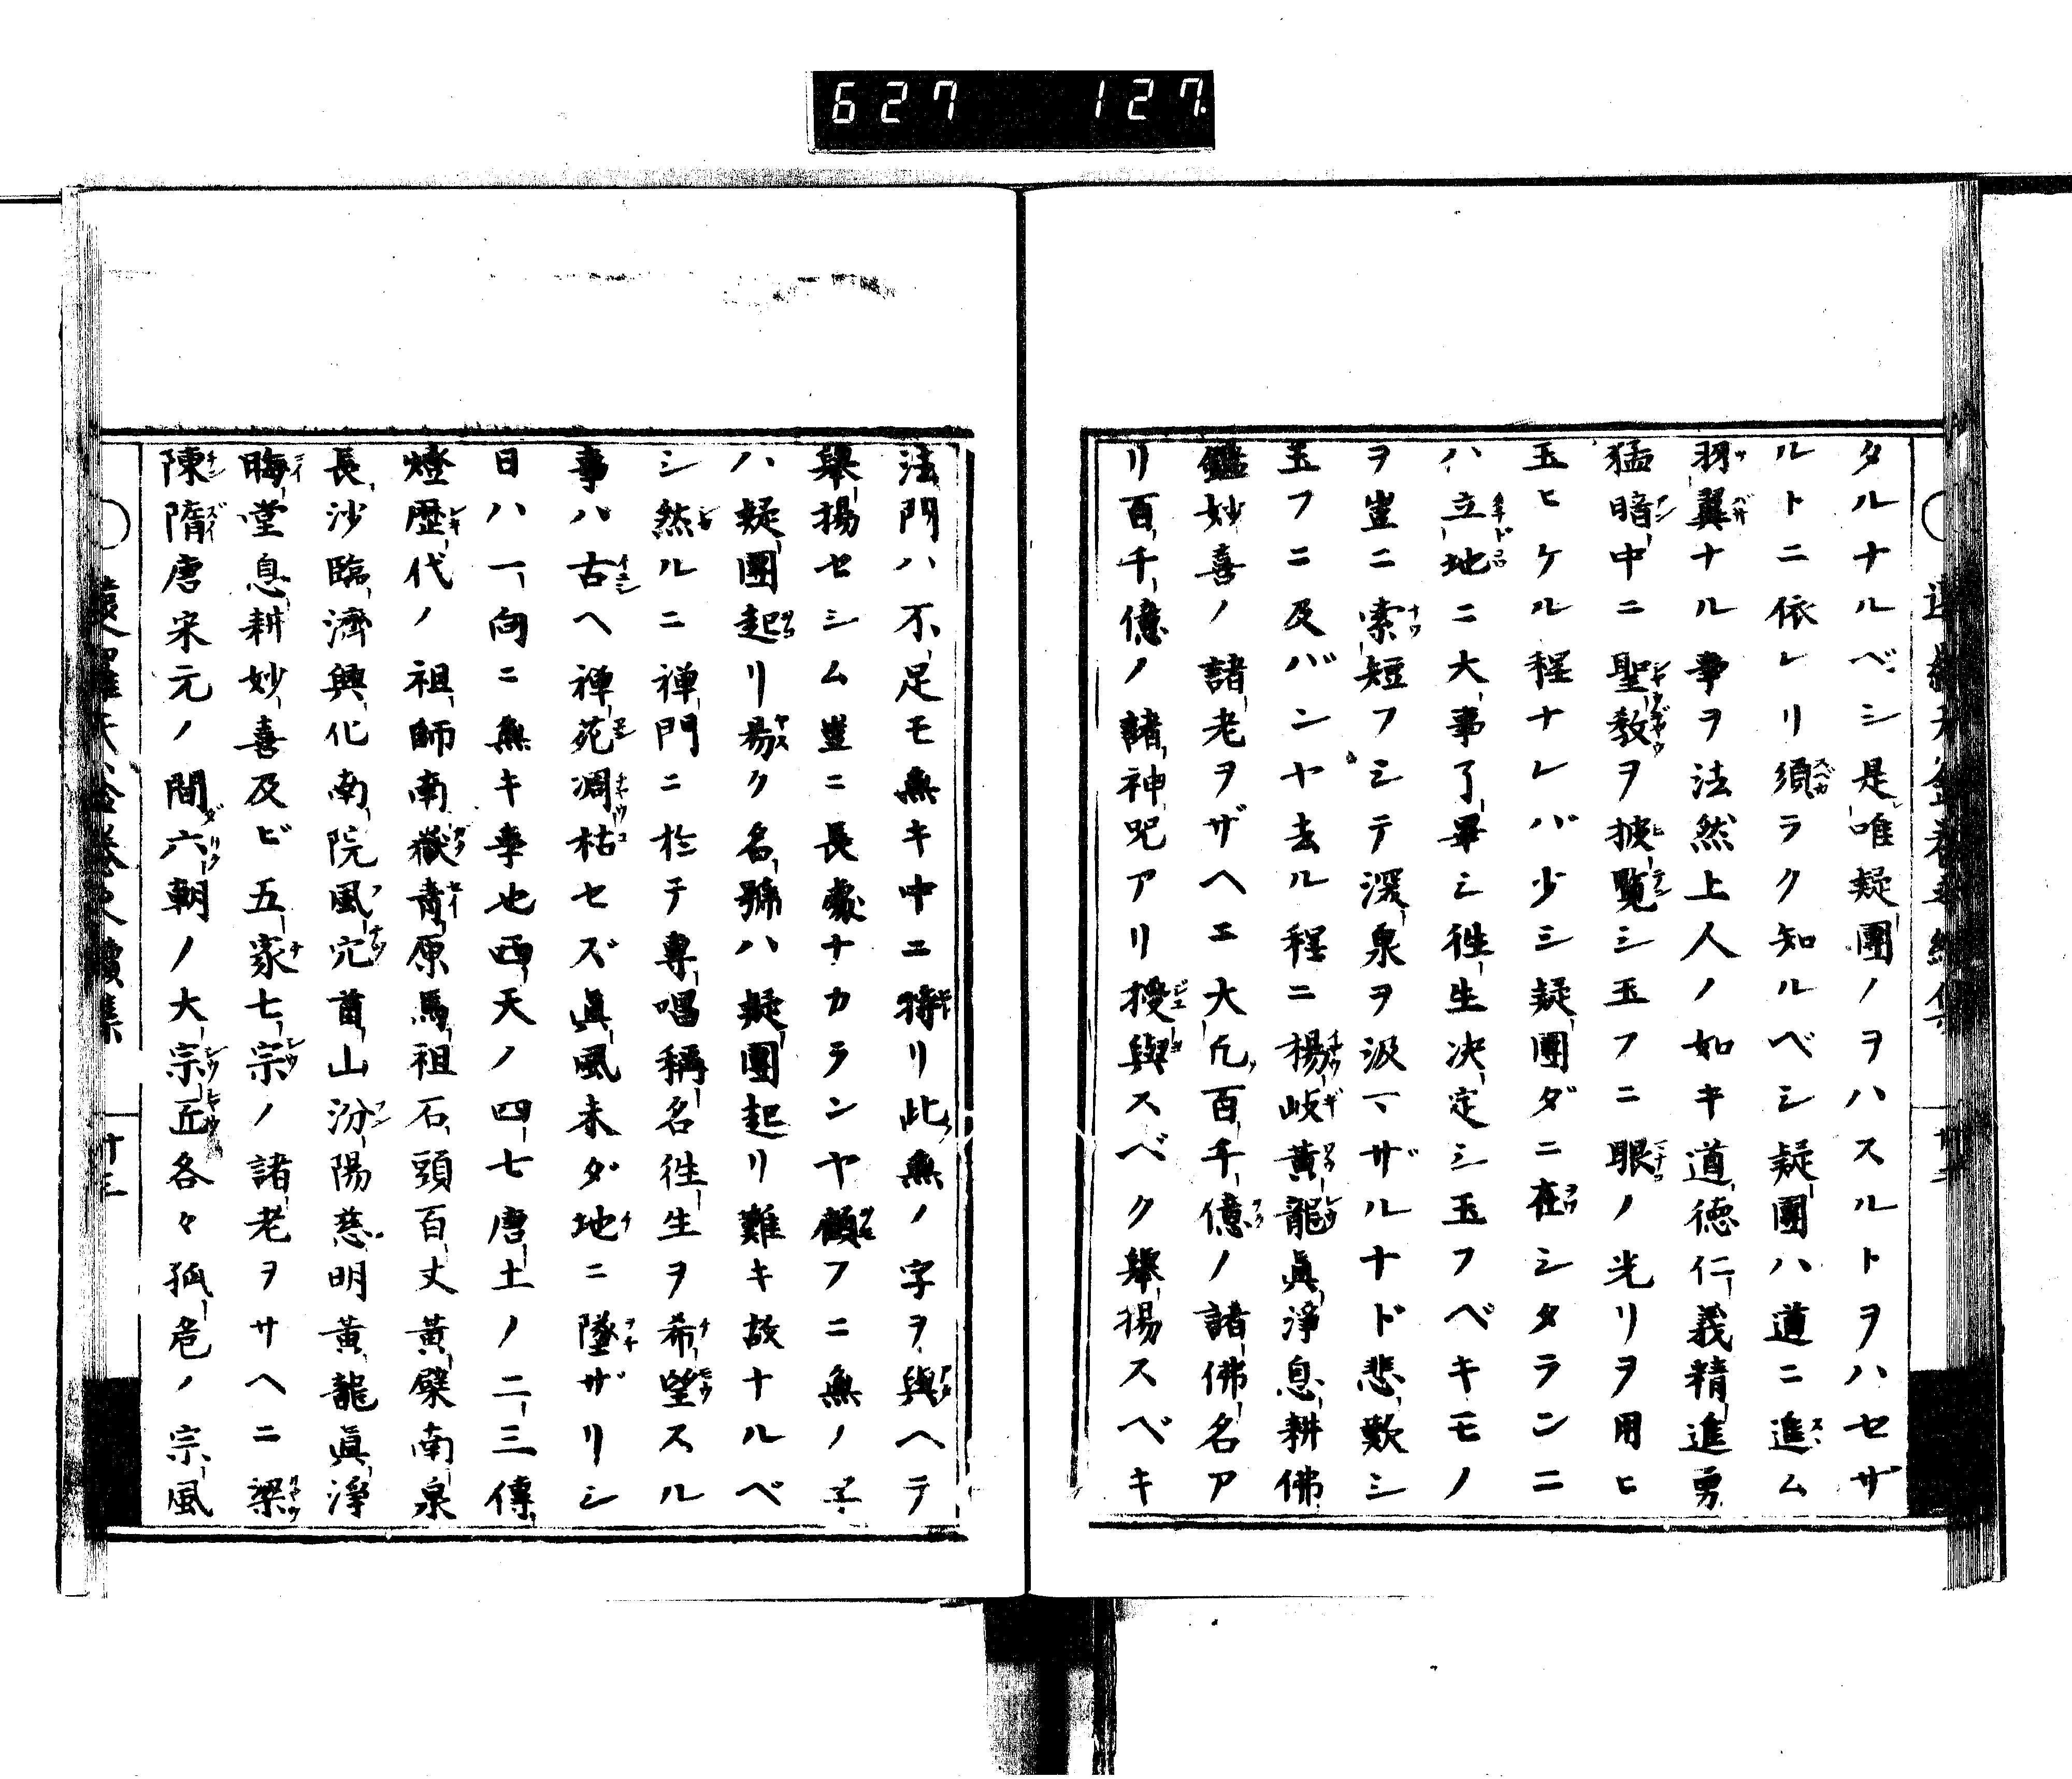 627 127
タルナルベシ是レ唯疑團ノヲハスルトヲハセザ
ルトニ依レリ須ラク知ルベシ疑團ハ道ニ進ム
羽翼ナル事ヲ法然上人ノ如キ道徳仁義精進勇
猛暗中ニ聖教ヲ披覧シ玉フニ眼ノ光リヲ用ヒ
玉ヒケル程ナレバ少シ疑團ダニ在シタランニ
ハ立地ニ大事了畢シ徃生决定シ玉フベキモノ
ヲ豈ニ索短フシテ深泉ヲ汲マザルナドト悲歎シ
玉フニ及バンヤ去ル程ニ楊岐黄龍眞淨息耕佛
鑑妙喜ノ諸老ヲザヘエ大凡百千億ノ諸佛名ア
リ百千億ノ諸神呪アリ授與スベク擧揚スベキ
法門ハ不足モ無キ中エ特リ此無ノ字ヲ與ヘテ
擧揚セシム豈ニ長處ナカランヤ顧フニ無ノ字
ハ疑團起リ易ク名號ハ疑團起リ難キ故ナルベ
シ然ルニ禅門ニ於テ專唱稱名徃生ヲ希望スル
事ハ古ヘ禅苑凋枯セズ眞風未ダ地ニ墜ザリシ
日ハ一向ニ無キ事也西天ノ四七唐土ノ二三傳
燈歴代ノ祖師南嶽青原馬祖石頭百丈黄檗南泉
長沙臨濟興化南院風穴首山汾陽慈明黄龍眞淨
晦堂息耕妙喜及ビ五家七宗ノ諸老ヲサヘニ梁
陳隋唐宋元ノ間六朝ノ大宗匠各々孤危ノ宗風
十三